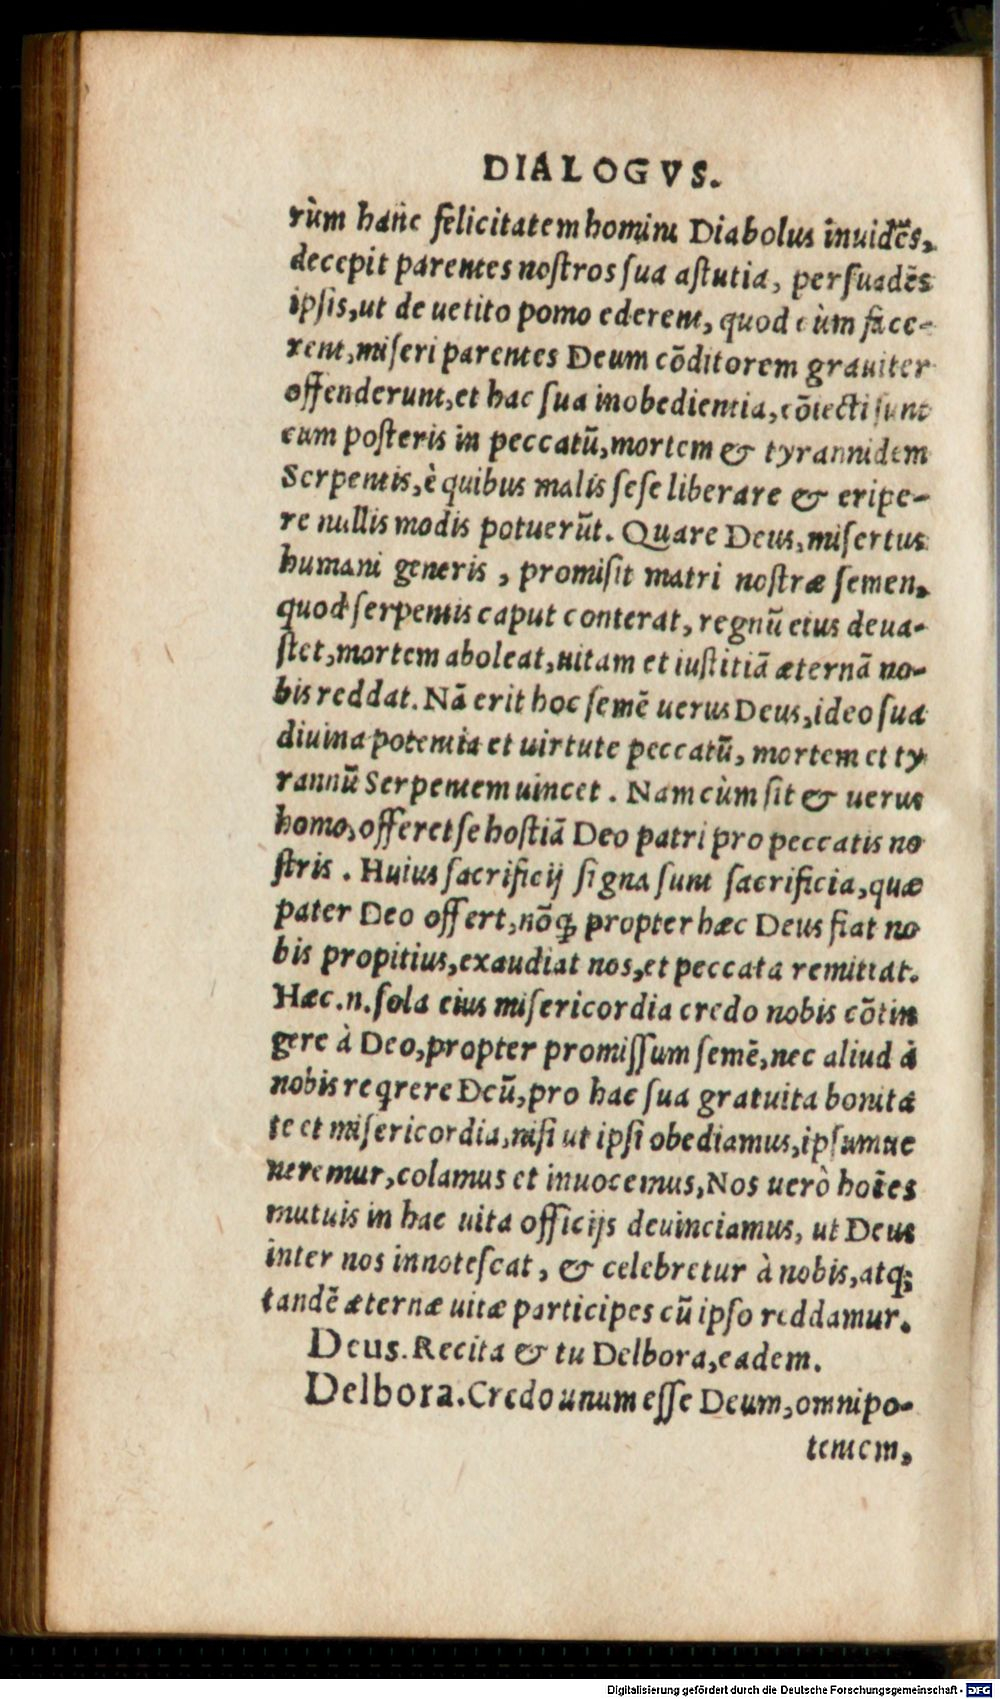 DIALOGVS.
rùm hanc felicitatem hominũ Diabolus inuidẽs,
decepit parentes nostros sua astutia, persuadẽs
ipsis, ut de uetito pomo ederent, quod cùm face-
rent, miseri parentes Deum cõditorem grauiter
offenderunt, et hac sua inobedientia, cõiecti sunt
cum posteris in peccatũ, mortem & tyrannidem
Serpentis, è quibus malis sese liberare & eripe-
re nullis modis potuerũt. Quare Deus, misertus
humani generis, promisit matri nostræ semen,
quod serpentis caput conterat, regnũ eius deua-
stet, mortem aboleat, uitam et iustitiã æternã no-
bis reddat. Nã erit hoc semẽ uerus Deus, ideo sua
diuina potentia et uirtute peccatũ, mortem et ty
rannũ Serpentem uincet. Nam cùm sit & uerus
homo, offeret se hostiã Deo patri pro peccatis no
stris. Huius sacrificij signa sunt sacrificia, quæ
pater Deo offert, nõq; propter hæc Deus fiat no
bis propitius, exaudiat nos, et peccata remittat.
Hæc .n. sola eius misericordia credo nobis cõtin
gere à Deo, propter promissum semẽ, nec aliud à
nobis reqrere Deũ, pro hac sua gratuita bonita
te et misericordia, nisi ut ipsi obediamus, ipsumue
neremur, colamus et inuocemus, Nos uerò hoĩes
mutuis in hac uita officijs deuinciamus, ut Deus
inter nos innotescat, & celebretur à nobis, atq;
tandẽ æternæ uitæ participes cũ ipso reddamur.
Deus. Recita & tu Delbora, eadem.
Delbora. Credo unum esse Deum, omnipo-
tentem,
Digitalisierung gefördert durch die Deutsche Forschungsgemeinschaft - DFG